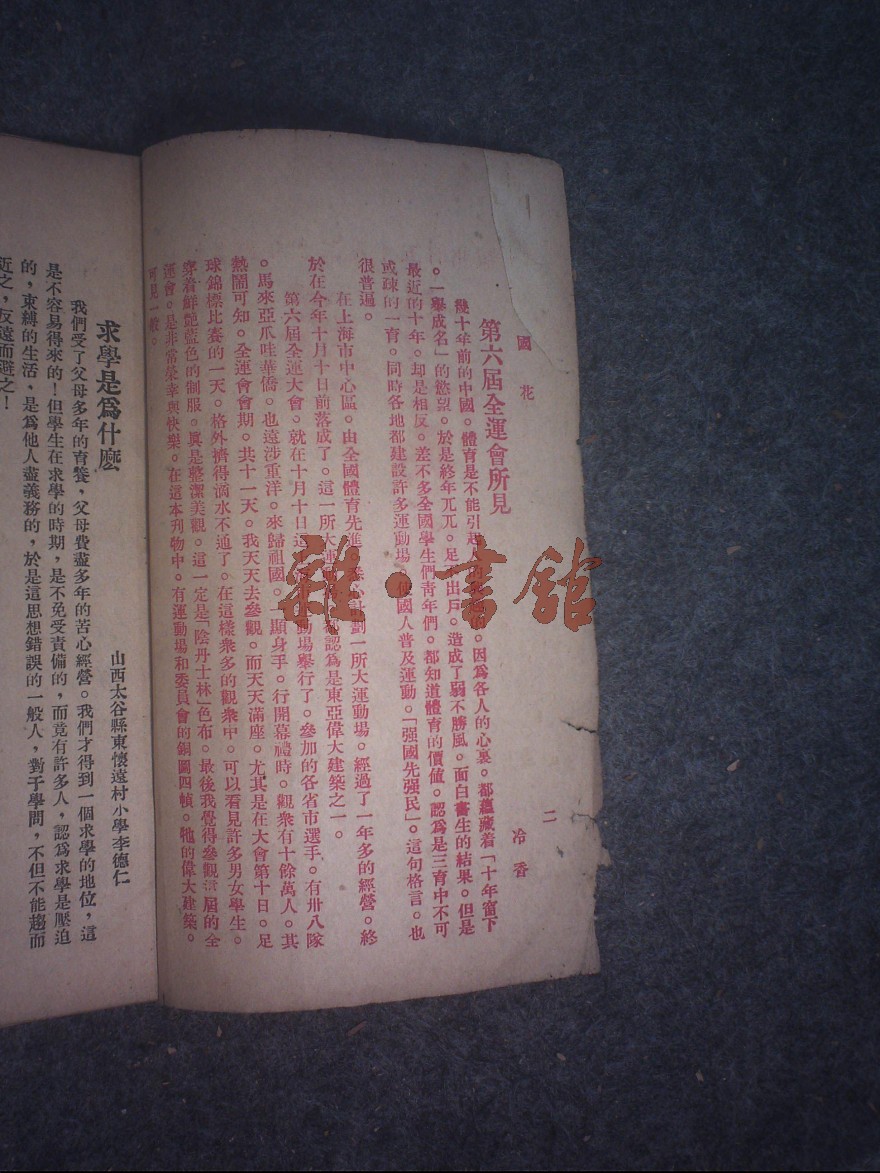 國花
二
第六屆全運會所見
冷香
幾十年前的中國。體育是不能引起人因爲各人的心裏。都蘊藏着「十年窗下
。一舉成名」的慾望。於是終年兀兀。足不出戶。造成了弱不勝風。面白書生的結果。但是
最近的十年。却是相反。差不多全國學生們靑年們。都知道體育的價値。認爲是三育中不可
或疎的一育。同時各地都建設許多運動場。使國人普及運動。「强國先强民」。這句格言。也
很普遍。
在上海市中心區。由全國體育先進計劃一所大運動場。經過了一年多的經營。終
於在今年十月十日前落成了。這一所大運動認爲是東亞偉大建築之一。
第六屆全運大會。就在十月十日這動場舉行了。參加的各省市選手。有卅八隊
。馬來亞爪哇華僑。也遠涉重洋。來歸祖國。一顯身手。行開幕禮時。觀衆有十餘萬人。其
熱鬧可知。全運會會期。共十一天。我天天去參觀。而天天滿座。尤其是在大會第十日。足
球錦標比賽的一天。格外擠得滴水不通了。在這樣衆多的觀衆中。可以看見許多男女學生。
穿着鮮艷藍色的制服。眞是整潔美觀。這一定是「陰丹士林」色布。最後我覺得參觀這屆的全
運會。是非常榮幸與快樂。在這本刊物中。有運動場和委員會的銅圖四幀。牠的偉大建築。
可見一般。
求學是爲什麽
山西太谷縣東懷遠村小學李德仁
我們受了父母多年的育養，父母費盡多年的苦心經營。我們才得到一個求學的地位，這
是不容易得來的！但學生在求學的時期，是不免受責備的，而竟有許多人，認爲求學是壓迫
的，束縛的生活，是爲他人盡義務的，於是這思想錯誤的一般人，對于學問，不但不能趨而
近之，反遠而避之！
雜·書館